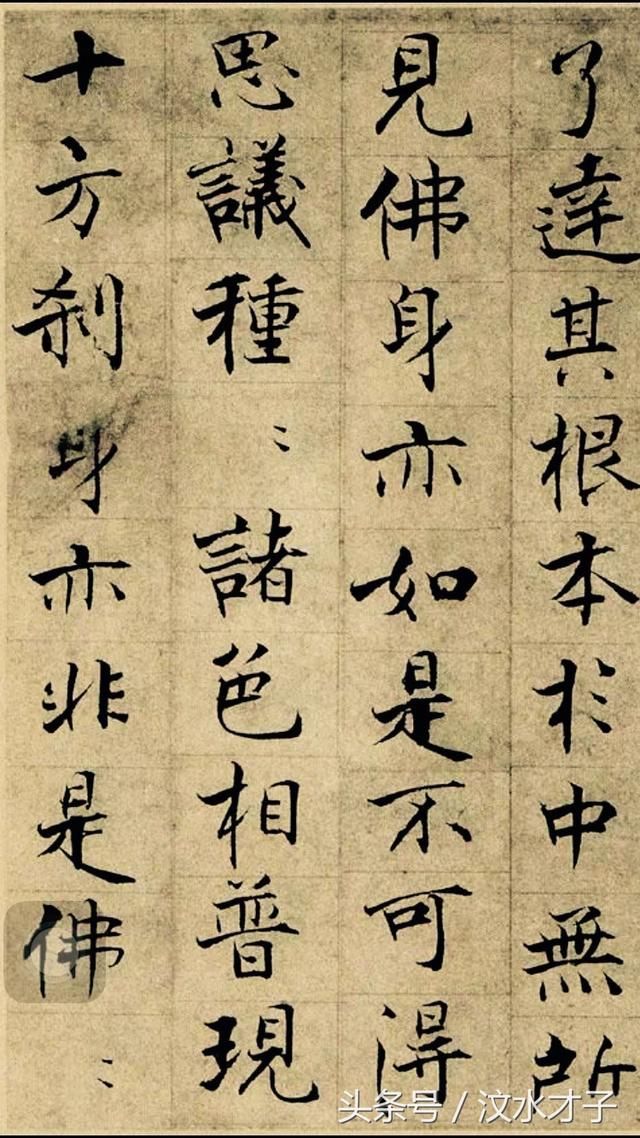 了達其根本於中無所
見佛身亦如是不可得
思議種〻諸色相普現
十方刹身亦非是佛〻
头条号 / 汶水才子